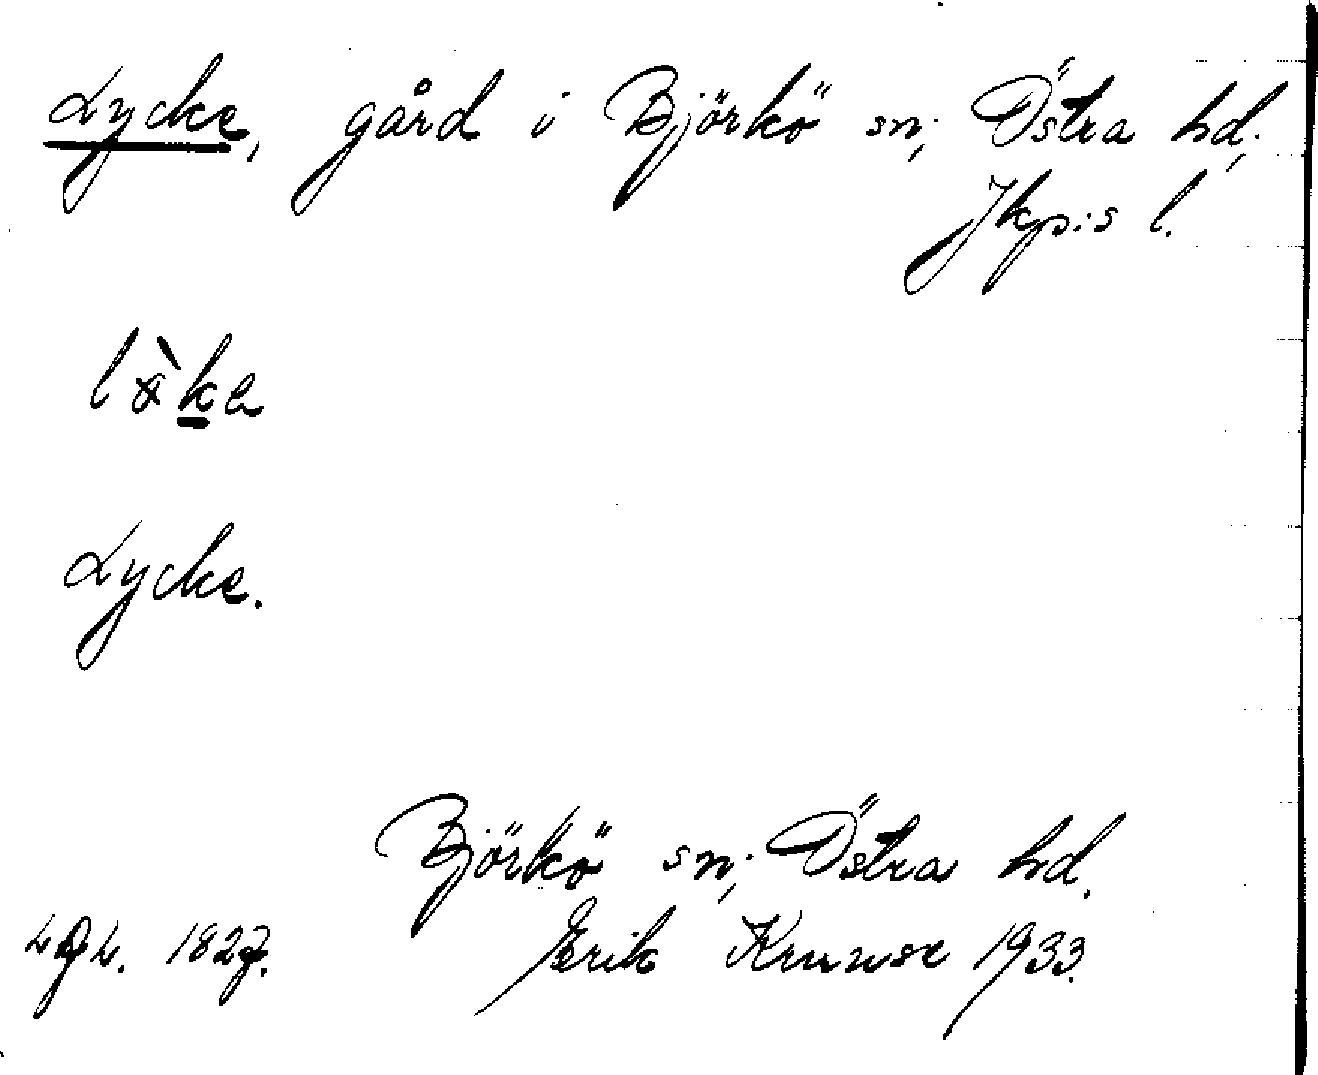 Lycke, gård i Björkö sn; Östra hd,
Jkp:s l.
Lycke.
Björkö sn; Östra hd.
1827. Erik Kruuse 1933.